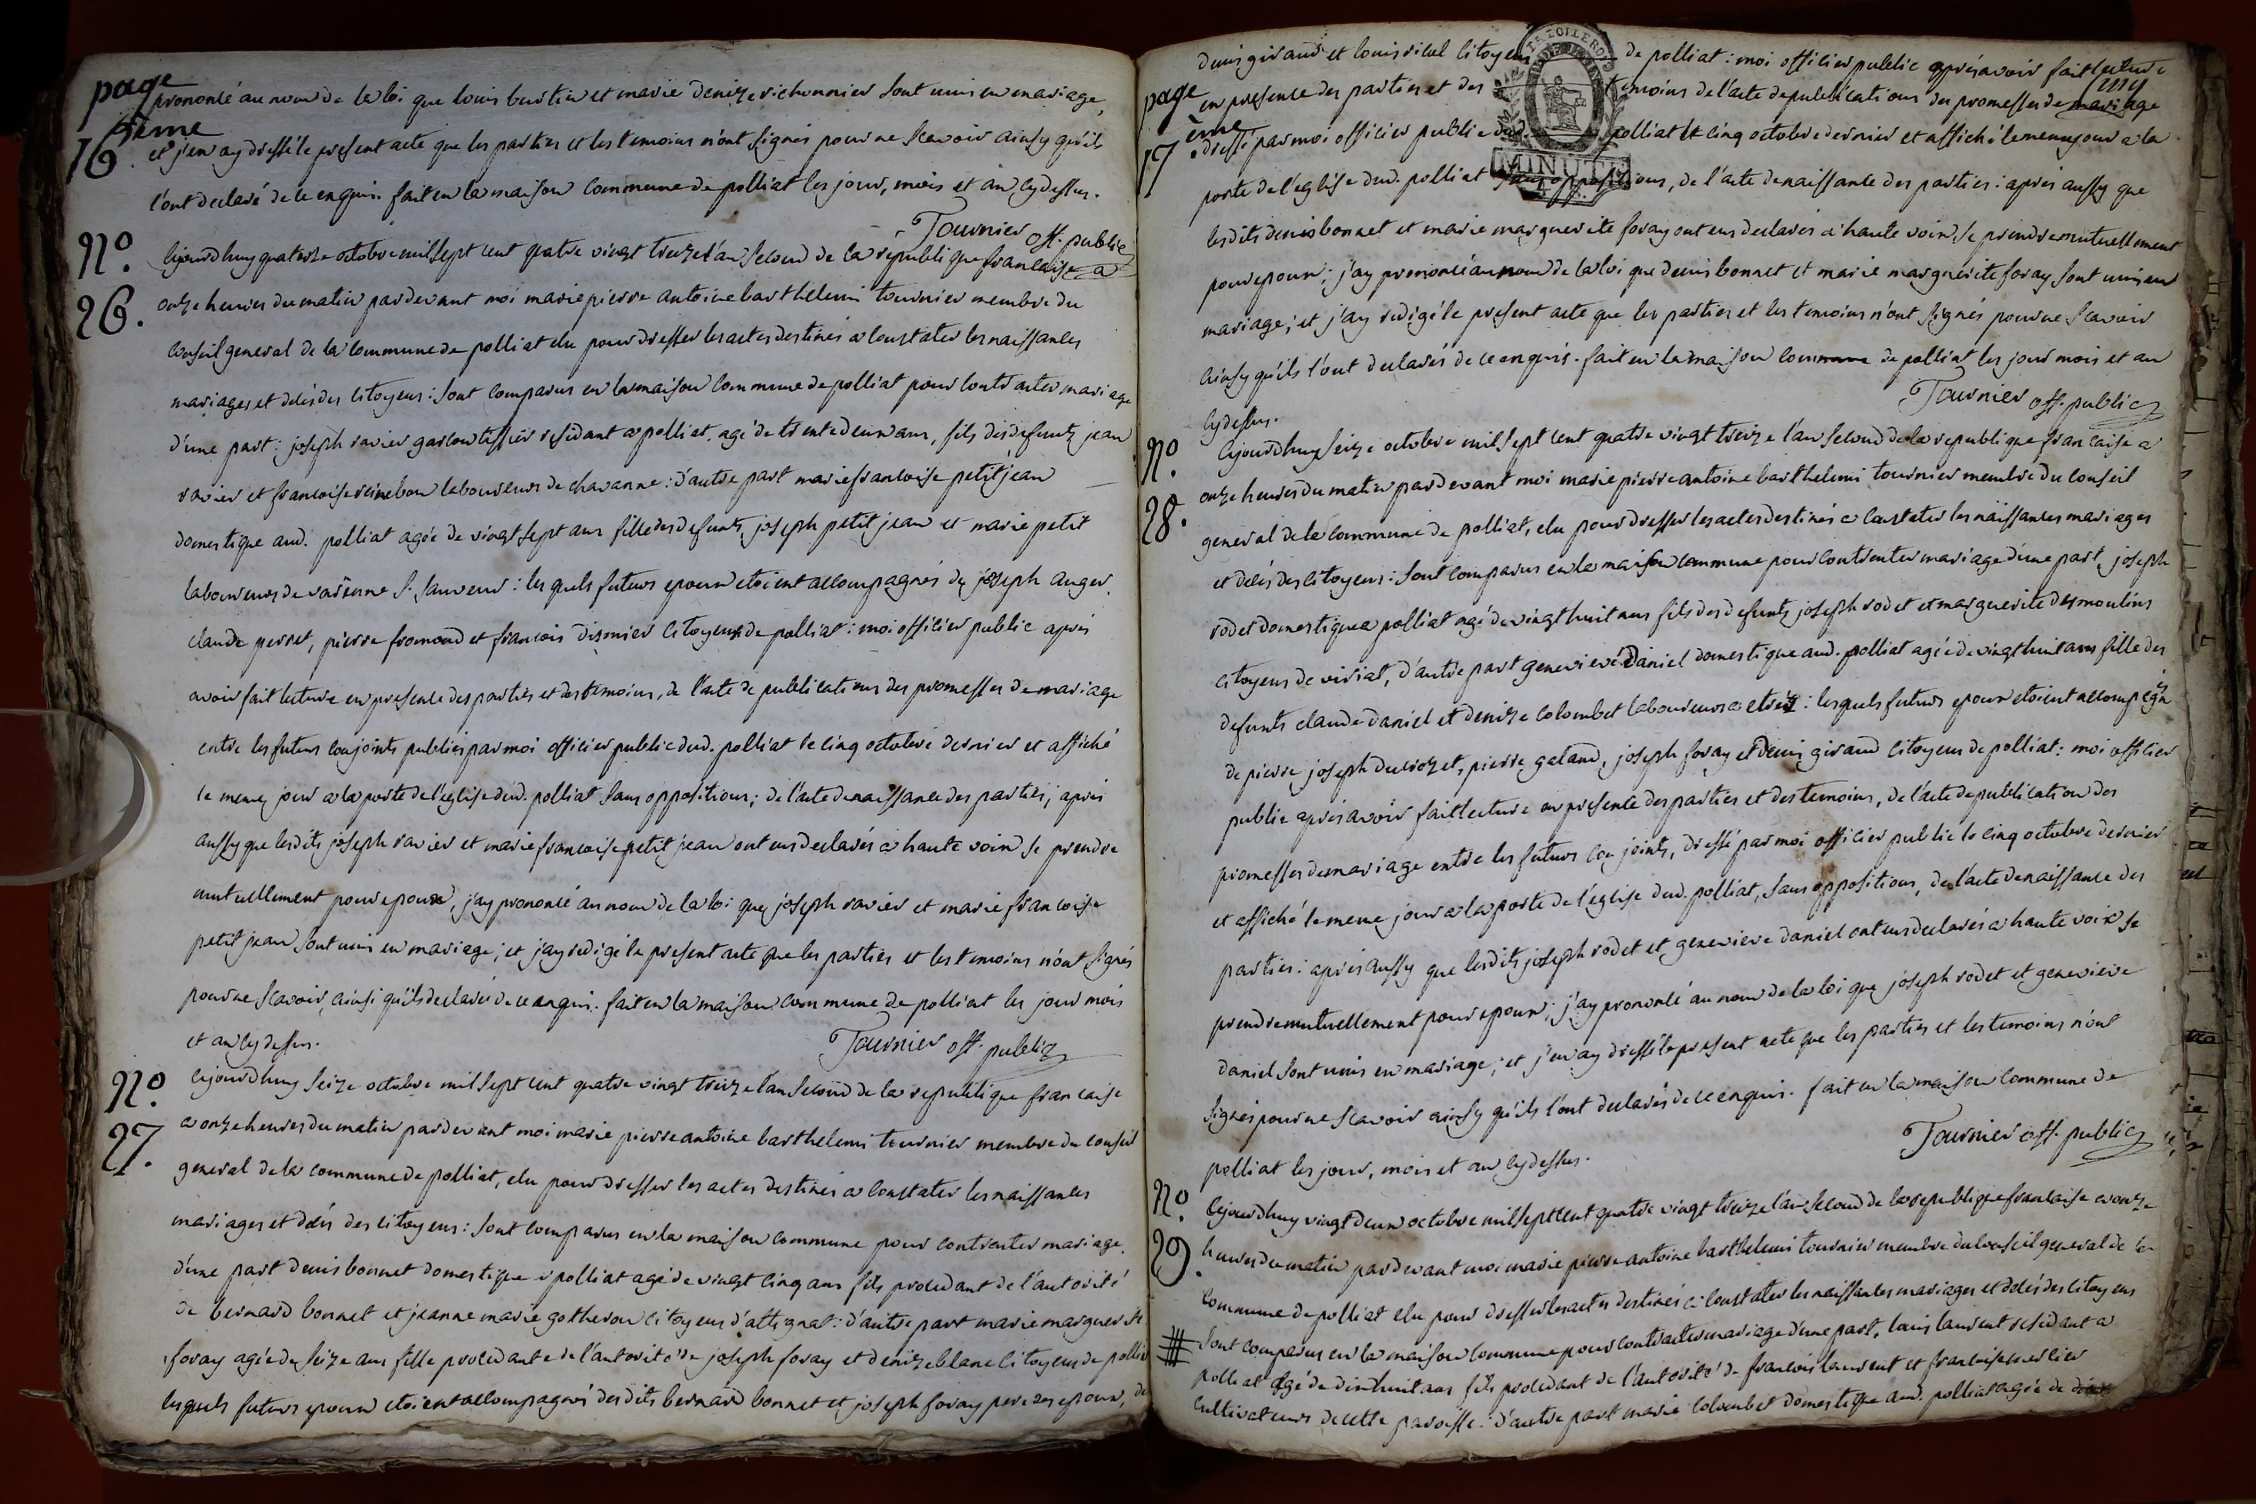 page
16ème
prononcé au nom de la loi que louis burtin et marie denize richonnier sont unis en mariage,
et j'en ay dressé le present acte que les parties et les temoins n'ont signés pour ne scavoir ainsy qu'ils
l'ont declaré de ce enquis. fait en la maison commune de polliat les jour, mois et an cydessus.
Tournier off. public
N° 26.
Cejourdhuy quatorze octobre mil sept cent quatre vingt treize l'an second de la republique francaise a
onze heures du matin pardevant moi marie pierre antoine barthelemi tournier membre du
conseil general de la commune de polliat elu pour dresser les actes destinés a constater les naissances
mariages et décès des citoyens : sont comparus en la maison commune de polliat pour contracter mariage
d'une part : joseph ravier garcon tissier residant a polliat, agé de trente deux ans, fils des defunts jean
ravier et francoise reinebon laboureurs de chavanne : d'autre part marie francoise petitjean
domestique aud. polliat agée de vingt sept ans fille des defunts joseph petit jean et marie petit
laboureurs de varenne S. Sauveur : lesquels futurs epoux etoient accompagnés de joseph auger,
claude perret, pierre fromond et francois disonier citoyens de polliat : moi officier public après
avoir fait lecture en presence des parties et des temoins, de l'acte de publications des promesses de mariage
entre les futurs conjoints publiés par moi officier public dud. polliat le cinq octobre dernier et affiché
le meme jour a la porte de l'eglise dud. polliat sans oppositions ; de l'acte de naissance des parties, après
aussy que lesdits joseph ravier et marie francoise petit jean ont eus declarés a haute voix se prendre
mutuellement pour epoux, j'ay prononcé au nom de la loi que joseph ravier et marie francoise
petit jean sont unis en mariage ; et j'ay redigé le present acte que les parties et les temoins n'ont signés
pour ne scavoir, ainsi qu'ils declarés de ce enquis. fait en la maison commune de polliat les jour mois
et an cydessus.
Tournier off. public
N° 27.
Cejourdhuy seize octobre mil sept cent quatre vingt treize l'an second de la republique francaise
a onze heures du matin pardevant moi marie pierre antoine barthelemi tournier membre du conseil
general de la commune de polliat, elu pour dresser les actes destinés a constater les naissances
mariages et décès des citoyens : sont comparus en la maison commune pour contracter mariage,
d'une part denis bonnet domestique a polliat agé de vingt cinq ans fils procedant de l'autorité
de bernard bonnet et jeanne marie gotheron citoyens d'attignat : d'autre part marie marguerite
foray agée de seize ans fille procedante de l'autorité de joseph foray et denize blanc citoyens de polliat
lesquels futurs epoux etoient accompagnés desdits bernard bonnet et joseph foray peres des epoux, de
page
17ème
denis giraud et louis rival citoyens de polliat : moi officier public après avoir fait lecture
en presence des parties et des temoins de l'acte de publications des promesses de mariage
dressé par moi officier public dud. polliat le cinq octobre dernier et affiché le meme jour a la
MINUTE
porte de l'eglise dud. polliat sans oppositions, de l'acte de naissance des parties : après aussy que
lesdits denis bonnet et marie marguerite foray ont eus declarés a haute voix se prendre mutuellement
pour epoux ; j'ay prononcé au nom de la loi que denis bonnet et marie marguerite foray sont unis en
mariage ; et j'ay redigé le present acte que les parties et les temoins n'ont signés pour ne scavoir
ainsy qu'ils l'ont declarés de ce enquis. fait en la maison commune de polliat les jour mois et an
cydessus.
Tournier off. public
N° 28.
Cejourdhuy seize octobre mil sept cent quatre vingt treize l'an second de la republique francaise a
onze heures du matin pardevant moi marie pierre antoine barthelemi tournier membre du conseil
general de la commune de polliat, elu pour dresser les actes destinés a constater les naissances mariages
et décès des citoyens : sont comparus en la maison commune pour contracter mariage d'une part, joseph
rodet domestique a polliat agé de vingt huit ans fils des defunts joseph rodet et marguerite desmoulins
citoyens de viriat, d'autre part genevieve Daniel domestique aud. polliat agée de vingt huit ans fille des
defunts claude daniel et denize colombet laboureurs a etrez : lesquels futurs epoux etoient accompagnés
de pierre joseph ducrozet, pierre galand, joseph foray et denis giraud citoyens de polliat : moi officier
public après avoir fait lecture en presente des parties et des temoins, de l'acte de publication des
promesses de mariage entre les futurs conjoints, dressé par moi officier public le cinq octobre dernier
et affiché le meme jour a la porte de l'eglise dud. polliat, sans oppositions, de l'acte de naissance des
parties : après aussy que lesdits joseph rodet et genevieve daniel ont eus declarés a haute voix se
prendre mutuellement pour epoux ; j'ay prononcé au nom de la loi que joseph rodet et genevieve
daniel sont unis en mariage ; et j'en ay dressé le present acte que les parties et les temoins n'ont
signés pour ne scavoir ainsy qu'ils l'ont declarés de ce enquis. fait en la maison commune de
polliat les jour, mois et an cydessus.
Tournier off. public
N° 29.
Cejourdhuy vingt deux octobre mil sept cent quatre vingt treize l'an second de la republique francaise a onze
heures du matin pardevant moi marie pierre antoine barthelemi tournier membre du conseil general de la
commune de polliat elu pour dresser les actes destinés a constater les naissances mariages et décès des citoyens
sont comparus en la maison commune pour contracter mariage d'une part, louis laurent residant a
polliat agé de dixhuit ans fils procedant de l'autorité de francois laurent et francoise merlier
cultivateurs de cette paroisse : d'autre part marie colombet domestique aud. polliat agée de